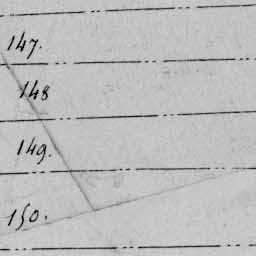 147.
148
149.
150.